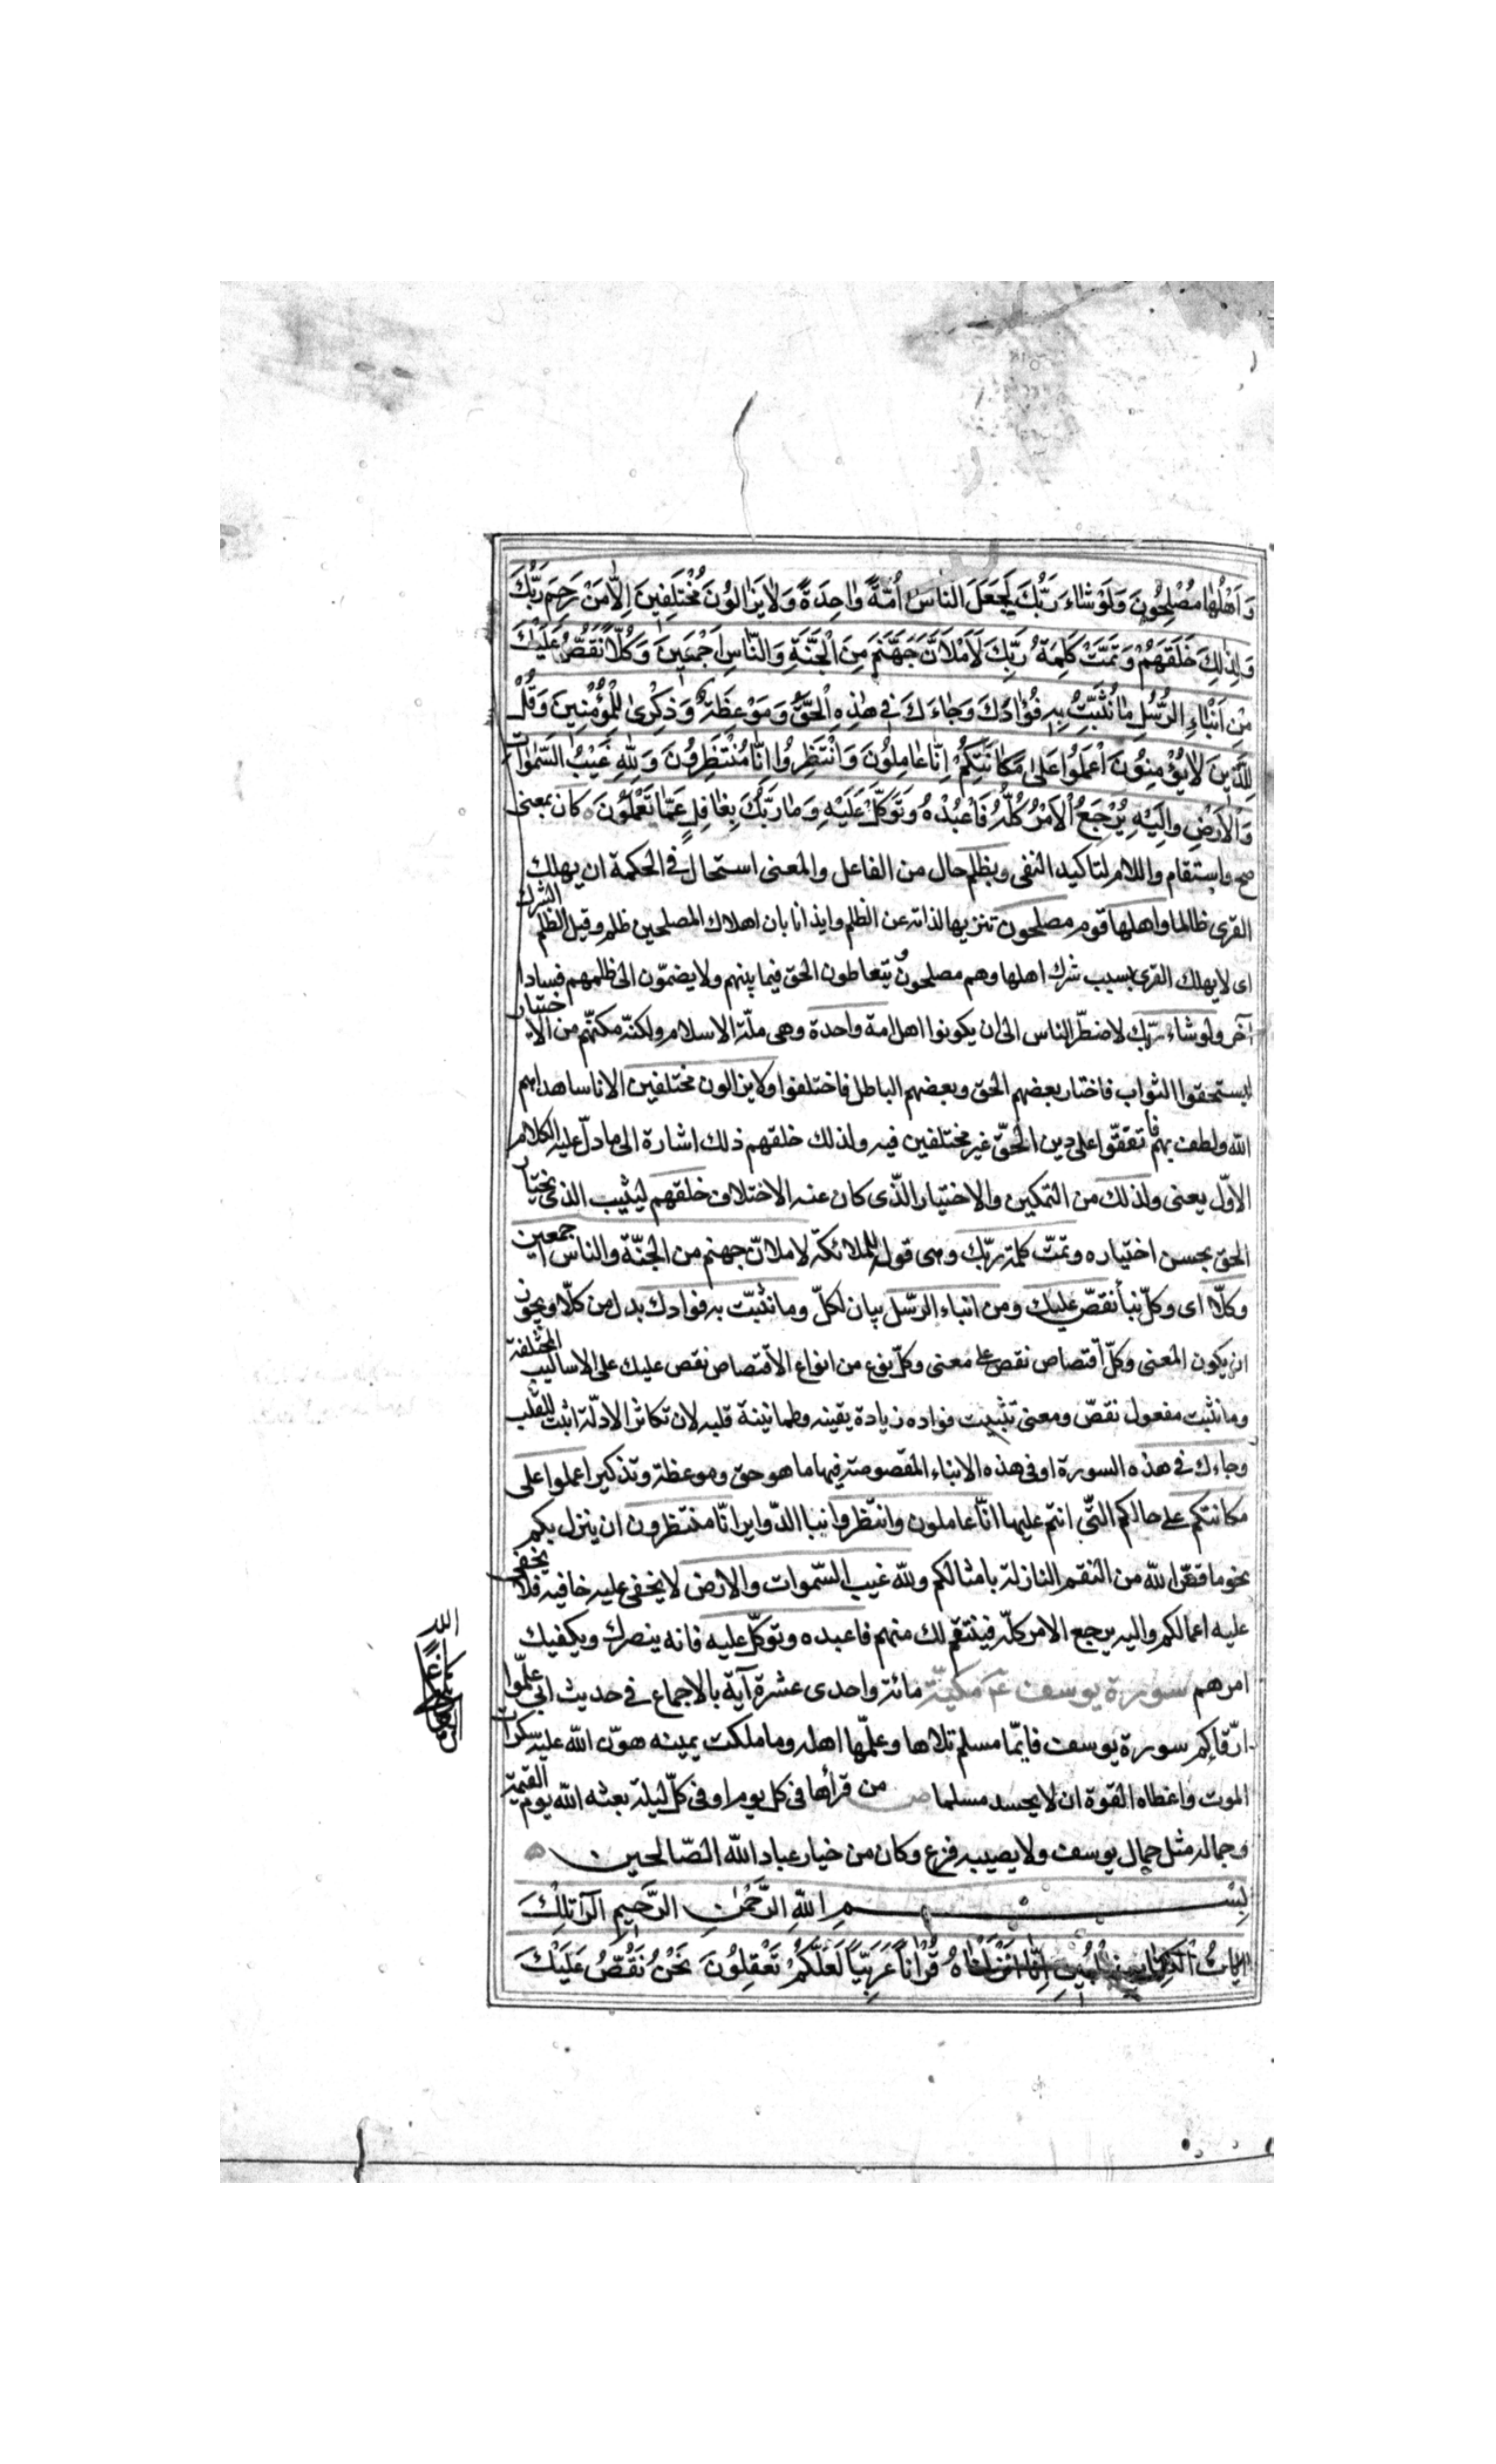 وَاَهْلُهٰا مُصْلِحُونَ وَلَوْ شٰاءَ رَبُّكَ لَجَعَلَ النّٰاسَ اُمَّةً وٰاحِدَةً وَلٰا يَزٰالُونَ مُخْتَلِفِينَ اِلّٰا مَنْ رَحِمَ رَبُّكَ
وَلِذٰلِكَ خَلَقَهُمْ وَتَمَّتْ كَلِمَةُ رَبِّكَ لَاَمْلَاَنَّ جَهَنَّمَ مِنَ الْجَنَّةِ وَالنّٰاسِ اَجْمَعِينَ وَكُلّاً نَقُصُّ عَلَيْكَ
مِنْ اَنْبٰاءِ الرُّسُلِ مٰا نُثَبِّتُ بِهِ فُؤٰادَكَ وَجٰاءَكَ فِي هٰذِهِ الْحَقُّ وَمَوْعِظَةٌ وَذِكْرىٰ لِلْمُؤْمِنِينَ وَقُلْ
لِلَّذِينَ لٰا يُؤْمِنُونَ اعْمَلُوا عَلىٰ مَكٰانَتِكُمْ اِنّٰا عٰامِلُونَ وَانْتَظِرُوا اِنّٰا مُنْتَظِرُونَ وَلِلّٰهِ غَيْبُ السَّمٰوٰاتِ
وَالْاَرْضِ وَاِلَيْهِ يُرْجَعُ الْاَمْرُ كُلُّهُ فَاعْبُدْهُ وَتَوَكَّلْ عَلَيْهِ وَمٰا رَبُّكَ بِغٰافِلٍ عَمّٰا تَعْمَلُونَ كان بمعنى
صح واستقام واللام لتاكيد النفى وبظلم حال من الفاعل والمعنى استحال في الحكمة ان يهلك
القرى ظالما واهلها قوم مصلحون تنزيها لذاته عن الظلم وايذانا بان اهلاك المصلحين ظلم وقيل الظلم الشرك
اى لا يهلك القرى بسبب شرك اهلها وهم مصلحون يتعاطون الحق فيما بينهم ولا يضمّون الى ظلمهم فسادا
آخر ولو شاء ربّك لاضطّر الناس الى ان يكونوا اهل امة واحدة وهى ملّة الاسلام ولكنّه مكنّهم من الاختيار
ليستحقوا الثواب فاختار بعضهم الحق وبعضهم الباطل فاختلفوا ولا يزالون مختلفين الا ناسا هداهم
الله ولطف بهم فاتفقوا على دين الحقّ غير مختلفين فيه ولذلك خلقهم ذلك اشارة الى ما دلّ عليه الكلام
الاوّل يعنى ولذلك من التمكين والاختيار الّذى كان عنه الاختلاف خلقهم ليثيب الذى يختار
الحق بحسن اختياره وتمّت كلمة ربّك وهى قوله للملائكة لاملانّ جهنم من الجنّة والناس اجمعين
وكلّا اى وكلّ نبأ نقصّ عليك ومن انباء الرّسل بيان لكلّ وما نثبّت به فوادك بدل من كلّا ويجوز
ان يكون المعنى وكلّ اقتصاص نقص على معنى وكلّ نوع من انواع الاقتصاص نقص عليك على الاساليب المختلفة
وما نثبت مفعول نقصّ ومعنى تثبيت فواده زيادة يقينه وطمانينة قلبه لان تكاثر الادلّة اثبت للقلب
وجاءك في هذه السورة او في هذه الانباء المقصوصة فيها ما هو حق وموعظة وتذكير اعملوا على
مكانتكم على حالكم التّى انتم عليها انّا عاملون وانتظروا بنا الدّواير انّا منتظرون ان ينزل بكم
نحو ما قصّ الله من النقم النازلة بامثالكم ولله غيب السّموات والارض لا يخفى عليه خافيه فلا يخفى
عليه اعمالكم واليه يرجع الامر كلّه فينتقم لك منهم فاعبده وتوكّل عليه فانه ينصرك ويكفيك
امرهم سورة يوسف مكيّة مائة واحدى عشرة آية بالاجماع في حديث ابى علّموا
ارقّاكم سورة يوسف فايّما مسلم تلاها وعلّمها اهله وما ملكت يمينه هوّن الله عليه سكرات
الموت واعطاه القوة ان لا يحسد مسلما ص من قرأها فى كل يوم او فى كلّ ليلة بعثه الله يوم القيمة
وجماله مثل جمال يوسف ولا يصيبه فزع وكان من خيار عباد الله الصّالحين
بِسْمِ اللهِ الرَّحْمٰنِ الرَّحِيمِ الٓرٰ تِلْكَ
اٰيٰاتُ الْكِتٰابِ الْمُبِينِ اِنّٰا اَنْزَلْنٰاهُ قُرْاٰناً عَرَبِيّاً لَعَلَّكُمْ تَعْقِلُونَ نَحْنُ نَقُصُّ عَلَيْكَ